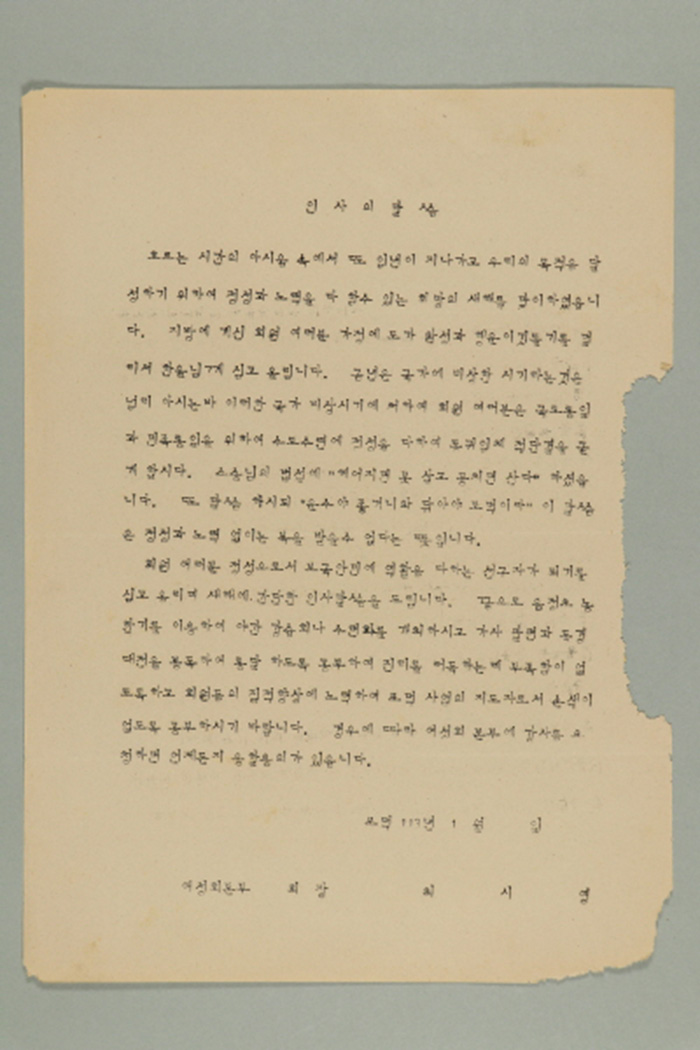 인 사 의 말 씀
흐르는 시간의 아시움 속에서 또 일년이 지나가고 우리의 목적을 달
성하기 위하여 정성과 노력을 다 할수 있는 희망의 새해를 맞이하였읍니
다. 지방에 계신 회원 여러분 가정에 도가 완성과 행운이깃들기를
한울님께 심고 올립니다. 금년은 국가에 비상한 시기라는것은
님이 아시는바 이러한 국가 비상시기에 처하여 회원 여러분은 국토통일
과 민족통일을 위하여 수도수련에 정성을 다하여 일체 굳
게 합시다. 스승님의 법설에 "헤어지면 못 살고 뭉치면 산다" 하셨읍
니다. 또 말씀 하시되 "운수야 좋거니와 닦아야 도덕이라" 이 말씀
은 정성과 노력 없이는 복을 받을수 없다는 뜻입니다.
회원 여러분 정성으로서 보국안민에 역활을 다하는 선구자가 되기를
심고 올리며 새해에 간단한 인사말씀을 드립니다. 끝으로 음정초 농
한기를 이용하여 야간 강습회나 수련회를 개최하시고 가사 말편과 동경
대전을 봉독하여 통달 하도록 공부하여 진리를 터득하는데 부족함이 없
도록하고 회원들의 질적향상에 노력하여 포덕 사업의 지도자로서 손색이
없도록 공부하시기 바랍니다. 경우에 따라 여성회 본부에 강사를 요
청하면 언제든지 응할용의가 있읍니다.
포덕 113년 1 월 일
여성회본부 회 장 최 시 영